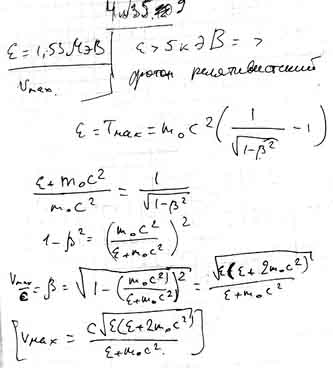 ε = 1,53 МэВ
Vmax.
ε > 5кэВ = >
фотон релятивистский
ε = Tmax = m₀c² (1/√(1-β²) - 1)
(ε + m₀c²)/(m₀c²) = 1/√(1-β²)
1-β² = (m₀c²/(ε+m₀c²))²
Vmax/c = β = √(1 - (m₀c²/(ε+m₀c²))²) = √(ε(ε+2m₀c²))/(ε+m₀c²)
[Vmax = c√(ε(ε+2m₀c²))/(ε+m₀c²)]